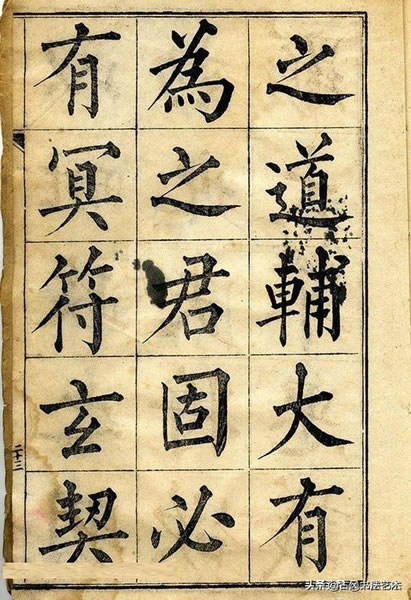 之道輔大有
為之君固必
有冥符玄契
二十三
头条@古风书法艺术